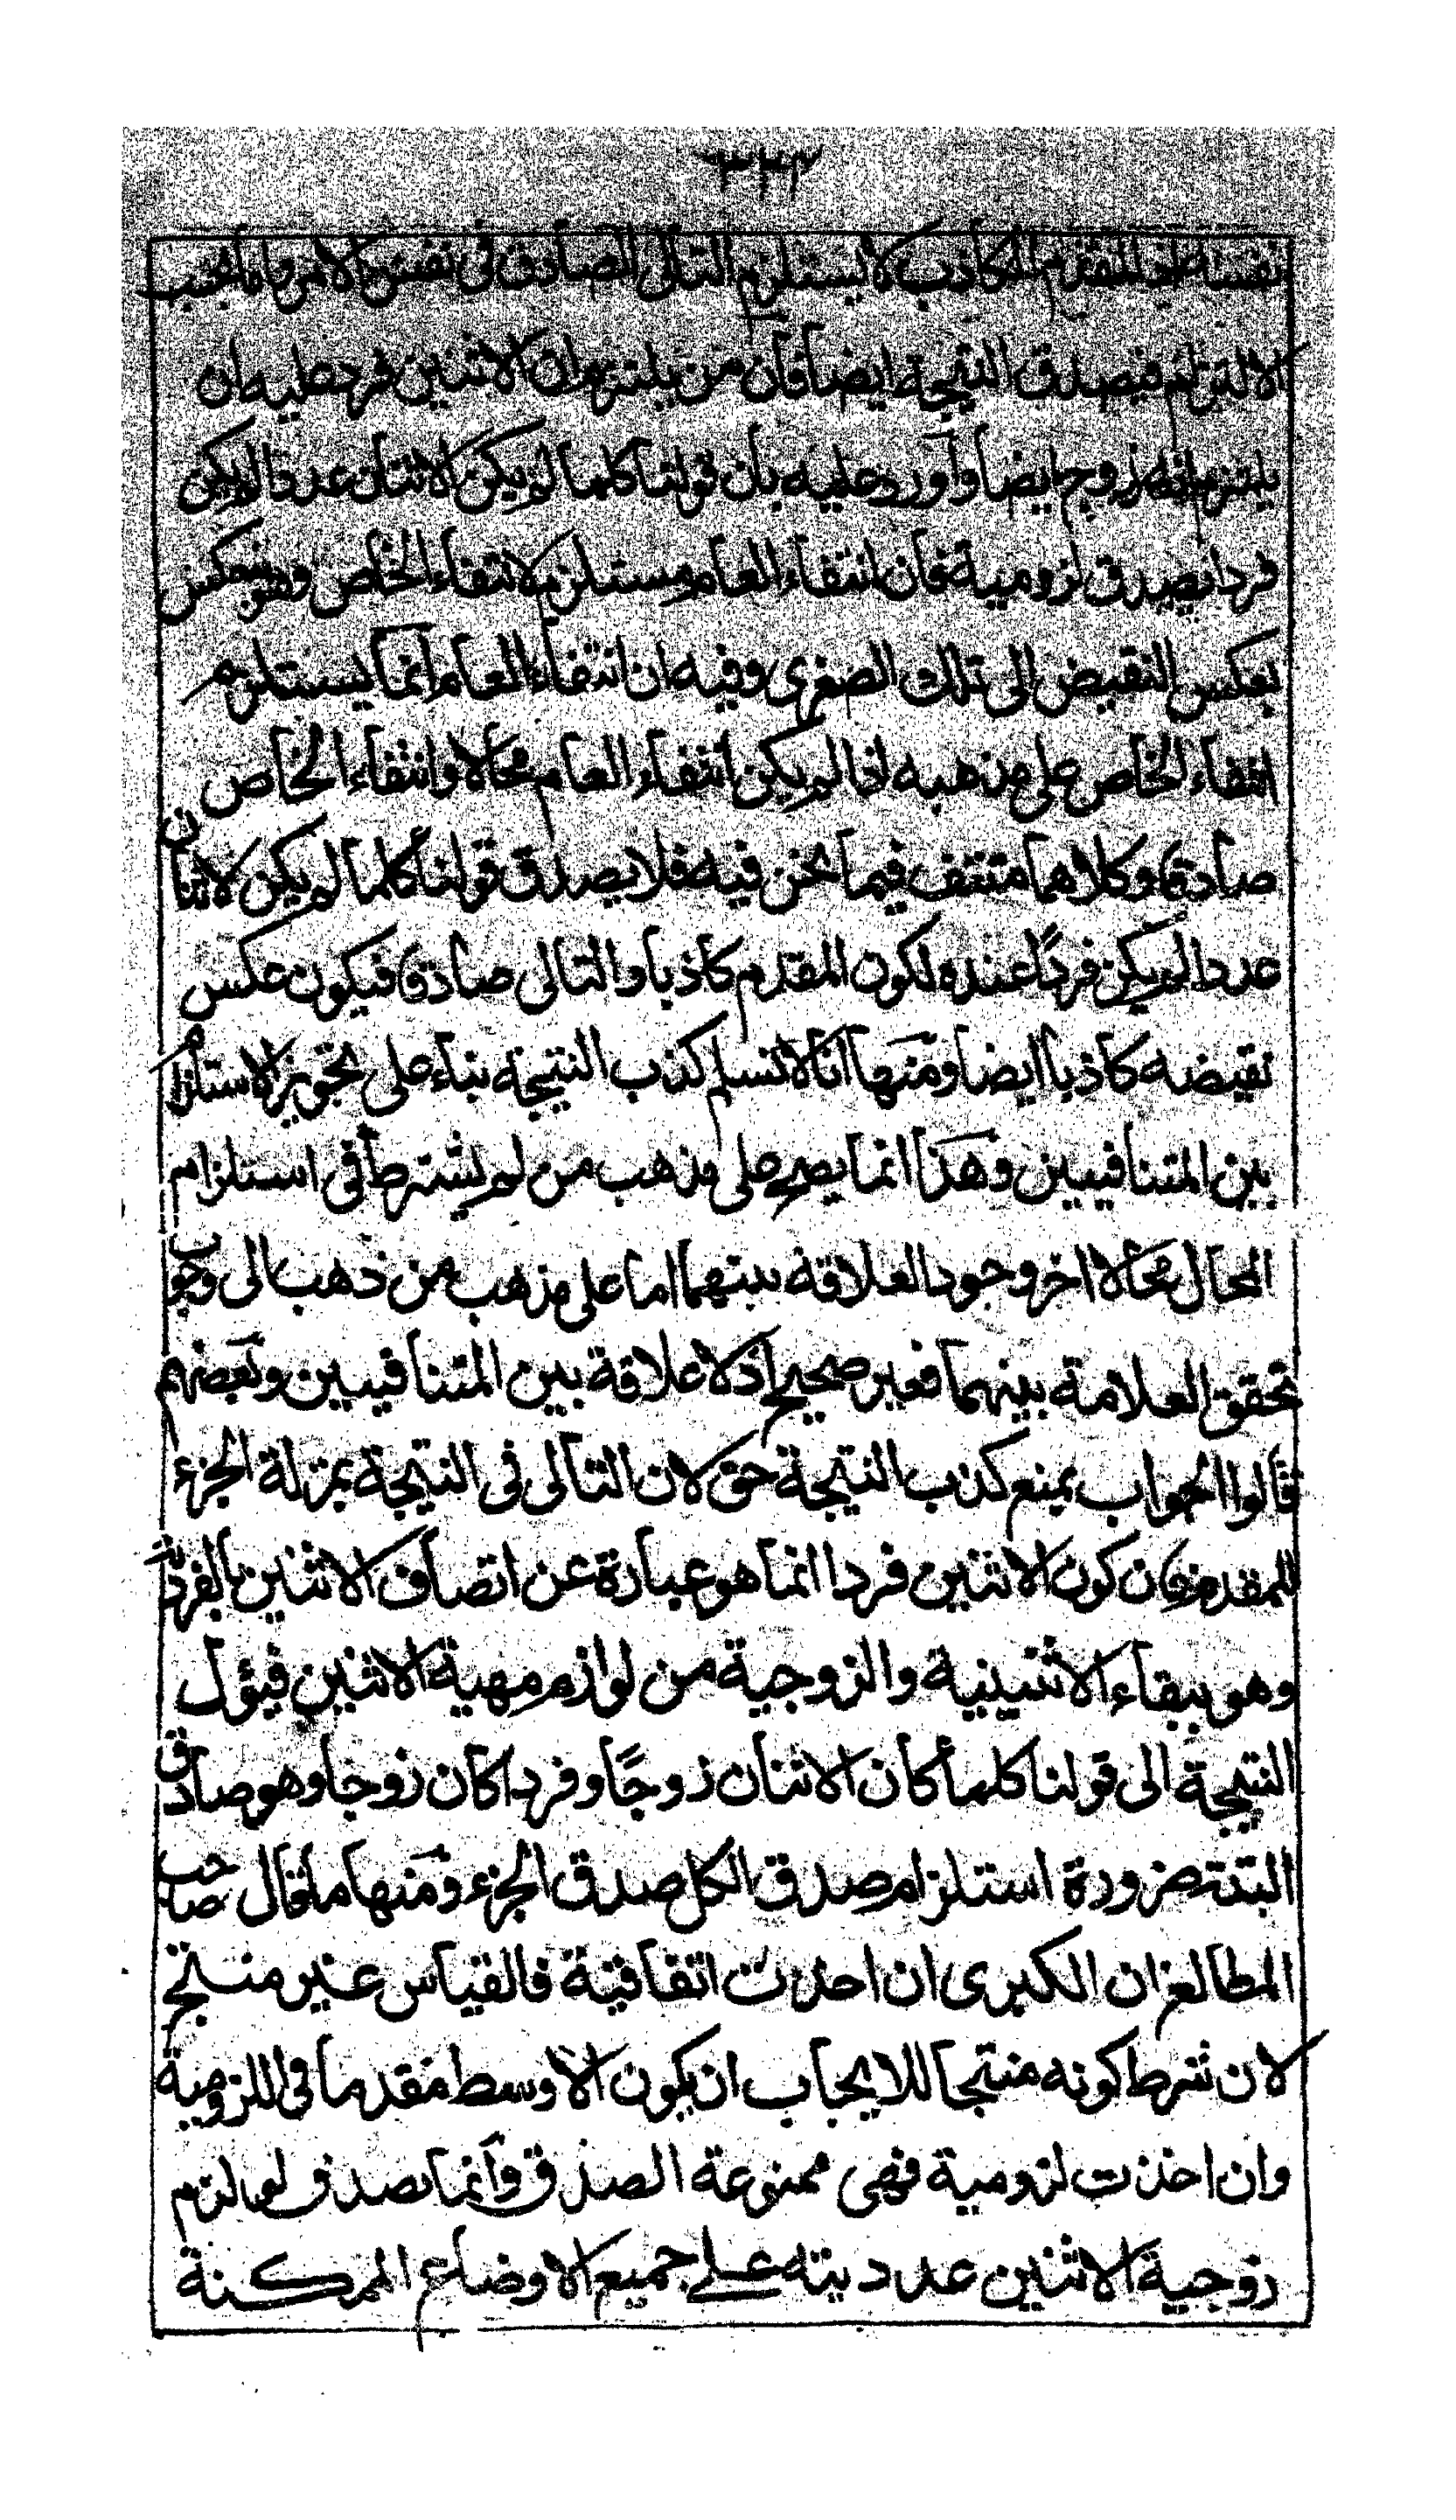 ٢٣٣
نفسه اذ المقدم الكاذب لا يستلزم التالى الصادق فى نفس الامر واما بحسب
الالتزام فيصدق النتيجة ايضا فان من يلتزم ان الاثنين فرد عليه ان
يلتزم انه زوج ايضا وأورد عليه بان قولنا كلما لم يكن الاثنان عددا لم يكن
فردا يصدق لزومية فان انتفاء العام مستلزم لانتفاء الخاص وهو ينعكس
بعكس النقيض الى تلك الصغرى وفيه ان انتفاء العام انما يستلزم
انتفاء الخاص على مذهبه اذا لم يكن انتفاء العام محالا وانتفاء الخاص
صادقا وكلاهما منتف فيما نحن فيه فلا يصدق قولنا كلما لم يكن الاثنان
عددا لم يكن فرداً عنده لكون المقدم كاذبا والتالى صادقا فيكون عكس
نقيضه كاذبا ايضا ومنها انا لا نسلم كذب النتيجة بناء على تجويز الاستلزام
بين المتنافيين وهذا انما يصح على مذهب من لم يشترط فى استلزام
المحال محالا اخر وجود العلاقة بينهما اما على مذهب من ذهب الى وجوب
تحقق العلامة بينهما فغير صحيح اذ لا علاقة بين المتنافيين وبعضهم
قالوا الجواب بمنع كذب النتيجة حق لان التالى فى النتيجة بمنزلة الجزء
للمقدم فان كون الاثنين فردا انما هو عبارة عن اتصاف الاثنين بالفردية
وهو ببقاء الاثنينية والزوجية من لوازم مهية الاثنين فيؤل
النتيجة الى قولنا كلما كان الاثنان زوجًا وفردا كان زوجا وهو صادق
البتة ضرورة استلزام صدق الكل صدق الجزء ومنها ما قال صاحب
المطالع ان الكبرى ان اخذت اتفاقية فالقياس غير منتج
لان شرط كونه منتجا للايجاب ان يكون الاوسط مقدما فى اللزومية
وان اخذت لزومية فهى ممنوعة الصدق وانما يصدق لو لزم
زوجية الاثنين عدديته على جميع الاوضاع الممكنة